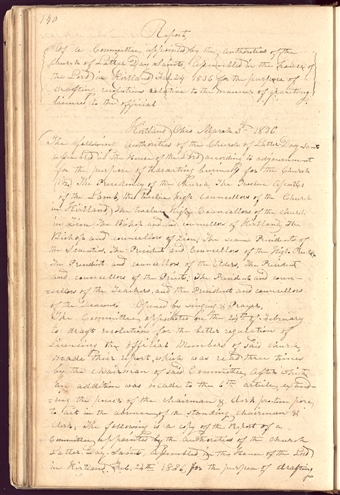 140
Report
Of a Committee, appointed by the authorities of the
Church of Latter Day Saints, assembled in the house of
the Lord in Kirtland Feb. 24 1836 for the purpose of
drafting resolutions relative to the manner of granting
licenses to the official
Kirtland Ohio March 3d 1836
The different authorities of the Church of Latter Day Saints
assembled in the House of the Lord according to adjournment
for the purpose of transacting business for the Church
(viz) The Presidency of the Church The Twelve Apostles
of the Lamb, the twelve high Counsellors of the Church
in Kirtland, The twelve High Counsellors of the Church
in Zion The Bishop and his counsellors of Kirtland The
Bishop and counsellors of Zion, The seven Presidents of
the Seventies, The President and Counsellors of the High Priests
The President and counsellors of the Elders, The President
and counsellors of the Priests, The President and coun-
sellors of the Teachers, and the President and counsellors
of the Deacons Opened by singing & Prayer,
The Committee appointed on the 24th of February
to draft resolution for the better regulation of
Licensing the official Members of said church
made their report, which was read three times
by the chairman of said Committee, after which
an addition was made to the 6th article
the power of the chairman & clerk protempore,
to act in the absence of the standing chairman &
clerk. The following is a copy of the Report of a
Committee appointed by the authorities of the Church
Latter Day Saints, assembled in the House of the Lord
in Kirtland Feb. 24th 1836, for the purpose of drafting